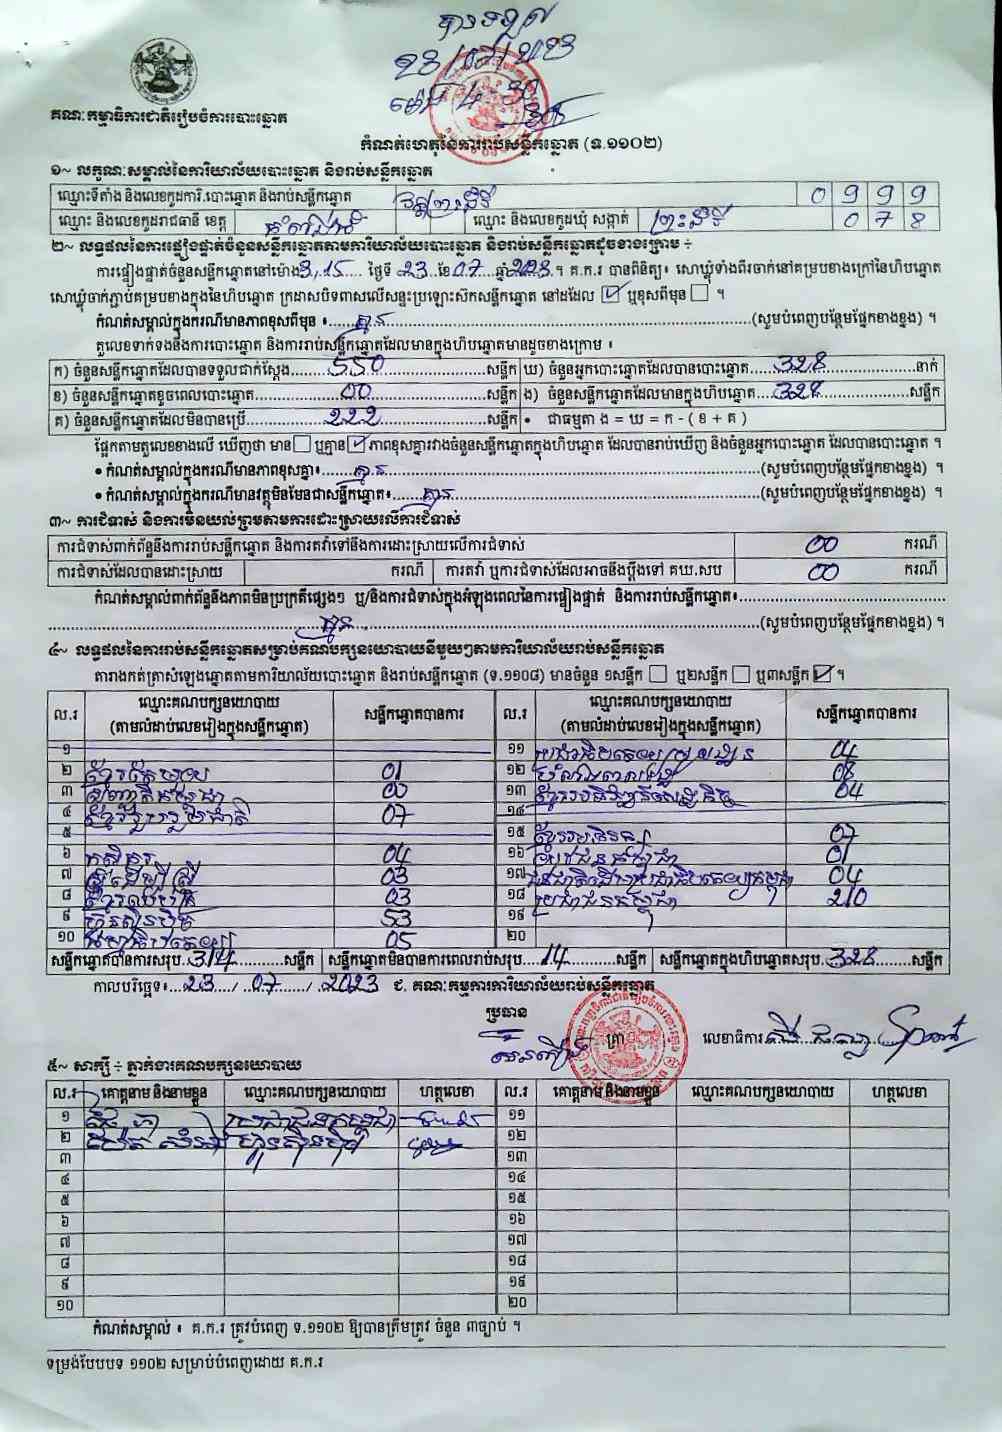 23/07/2023
ម៉ោង 4-30
គណៈកម្មាធិការជាតិរៀបចំការបោះឆ្នោត
កំណត់ហេតុនៃការរាប់សន្លឹកឆ្នោត (ទ.១១០២)
១~ លក្ខណៈសម្គាល់នៃការិយាល័យបោះឆ្នោត និងរាប់សន្លឹកឆ្នោត
ឈ្មោះទីតាំង និងលេខកូដការិ.បោះឆ្នោត និងរាប់សន្លឹកឆ្នោត វត្តព្រះនិពន្ធ 0 9 9 9
ឈ្មោះ និងលេខកូដរាជធានី ខេត្ត ឈ្មោះ និងលេខកូដឃុំ សង្កាត់ 0 7 8
២~ លទ្ធផលនៃការផ្ទៀងផ្ទាត់ចំនួនសន្លឹកឆ្នោតតាមការិយាល័យបោះឆ្នោត និងរាប់សន្លឹកឆ្នោតដូចខាងក្រោម ÷
ការផ្ទៀងផ្ទាត់ចំនួនសន្លឹកឆ្នោតនៅម៉ោង 3,15 ថ្ងៃទី 23 ខែ 07 ឆ្នាំ 2023 ។ គ.ក.រ បានពិនិត្យ៖ សោឃ្លុំទាំងពីរចាក់នៅគម្របខាងក្រៅនៃហិបឆ្នោត
សោឃ្លុំចាក់ភ្ជាប់គម្របខាងក្នុងនៃហិបឆ្នោត ក្រដាសបិទពាសលើសន្ទះប្រឡោះស៊កសន្លឹកឆ្នោត នៅដដែល ☑ ឬខុសពីមុន ☐ ។
កំណត់សម្គាល់ក្នុងករណីមានភាពខុសពីមុន ៖ គ្មាន (សូមបំពេញបន្ថែមផ្នែកខាងខ្នង) ។
តួលេខទាក់ទងនឹងការបោះឆ្នោត និងការរាប់សន្លឹកឆ្នោតដែលមានក្នុងហិបឆ្នោតមានដូចខាងក្រោម ៖
ក) ចំនួនសន្លឹកឆ្នោតដែលបានទទួលជាក់ស្ដែង 550 សន្លឹក ឃ) ចំនួនអ្នកបោះឆ្នោតដែលបានបោះឆ្នោត 328 នាក់
ខ) ចំនួនសន្លឹកឆ្នោតខូចពេលបោះឆ្នោត 00 សន្លឹក ង) ចំនួនសន្លឹកឆ្នោតដែលមានក្នុងហិបឆ្នោត 328 សន្លឹក
គ) ចំនួនសន្លឹកឆ្នោតដែលមិនបានប្រើ 222 សន្លឹក • ជាធម្មតា ង = ឃ = ក - ( ខ + គ )
ផ្អែកតាមតួលេខខាងលើ ឃើញថា មាន ☐ ឬគ្មាន ☑ ភាពខុសគ្នារវាងចំនួនសន្លឹកឆ្នោតក្នុងហិបឆ្នោត ដែលបានរាប់ឃើញ និងចំនួនអ្នកបោះឆ្នោត ដែលបានបោះឆ្នោត ។
• កំណត់សម្គាល់ក្នុងករណីមានភាពខុសគ្នា៖ គ្មាន (សូមបំពេញបន្ថែមផ្នែកខាងខ្នង) ។
• កំណត់សម្គាល់ក្នុងករណីមានវត្ថុមិនមែនជាសន្លឹកឆ្នោត៖ គ្មាន (សូមបំពេញបន្ថែមផ្នែកខាងខ្នង) ។
៣~ ការជំទាស់ និងការមិនយល់ព្រមតាមការដោះស្រាយលើការជំទាស់
ការជំទាស់ពាក់ព័ន្ធនឹងការរាប់សន្លឹកឆ្នោត និងការតវ៉ាទៅនឹងការដោះស្រាយលើការជំទាស់ 00 ករណី
ការជំទាស់ដែលបានដោះស្រាយ ករណី ការតវ៉ា ឬការជំទាស់ដែលអាចនឹងប្ដឹងទៅ គឃ.សប 00 ករណី
កំណត់សម្គាល់ពាក់ព័ន្ធនឹងភាពមិនប្រក្រតីផ្សេងៗ ឬ/និងការជំទាស់ក្នុងអំឡុងពេលនៃការផ្ទៀងផ្ទាត់ និងការរាប់សន្លឹកឆ្នោត៖
គ្មាន (សូមបំពេញបន្ថែមផ្នែកខាងខ្នង) ។
៤~ លទ្ធផលនៃការរាប់សន្លឹកឆ្នោតសម្រាប់គណបក្សនយោបាយនីមួយៗតាមការិយាល័យរាប់សន្លឹកឆ្នោត
តារាងកត់ត្រាសំឡេងឆ្នោតតាមការិយាល័យបោះឆ្នោត និងរាប់សន្លឹកឆ្នោត (ទ.១១០៨) មានចំនួន ១សន្លឹក ☐ ឬ២សន្លឹក ☐ ឬ៣សន្លឹក ☑ ។
ល.រ ឈ្មោះគណបក្សនយោបាយ (តាមលំដាប់លេខរៀងក្នុងសន្លឹកឆ្នោត) សន្លឹកឆ្នោតបានការ ល.រ ឈ្មោះគណបក្សនយោបាយ (តាមលំដាប់លេខរៀងក្នុងសន្លឹកឆ្នោត) សន្លឹកឆ្នោតបានការ
១ ១១ 04
២ 01 ១២ 08
៣ 00 ១៣ 04
៤ ខ្មែររួបរួមជាតិ 07 ១៤
៥ ១៥ 07
៦ កសិករ 04 ១៦ 01
៧ ដើម្បីស្ត្រី 03 ១៧ 04
៨ 03 ១៨ ប្រជាជនកម្ពុជា 210
៩ ហ្វ៊ុនស៊ិនប៉ិច 53 ១៩
១០ 05 ២០
សន្លឹកឆ្នោតបានការសរុប 314 សន្លឹក សន្លឹកឆ្នោតមិនបានការពេលរាប់សរុប 14 សន្លឹក សន្លឹកឆ្នោតក្នុងហិបឆ្នោតសរុប 328 សន្លឹក
កាលបរិច្ឆេទ៖ 23 / 07 / 2023 ជ. គណៈកម្មការការិយាល័យរាប់សន្លឹកឆ្នោត
ប្រធាន
ត្រា លេខាធិការ
៥~ សាក្សី ÷ ភ្នាក់ងារគណបក្សនយោបាយ
ល.រ គោត្តនាម និងនាមខ្លួន ឈ្មោះគណបក្សនយោបាយ ហត្ថលេខា ល.រ គោត្តនាម និងនាមខ្លួន ឈ្មោះគណបក្សនយោបាយ ហត្ថលេខា
១ ប្រជាជនកម្ពុជា ១១
២ ហ្វ៊ុនស៊ិនប៉ិច ១២
៣ ១៣
៤ ១៤
៥ ១៥
៦ ១៦
៧ ១៧
៨ ១៨
៩ ១៩
១០ ២០
កំណត់សម្គាល់ ៖ គ.ក.រ ត្រូវបំពេញ ទ.១១០២ ឱ្យបានត្រឹមត្រូវ ចំនួន ៣ច្បាប់ ។
ទម្រង់បែបបទ ១១០២ សម្រាប់បំពេញដោយ គ.ក.រ